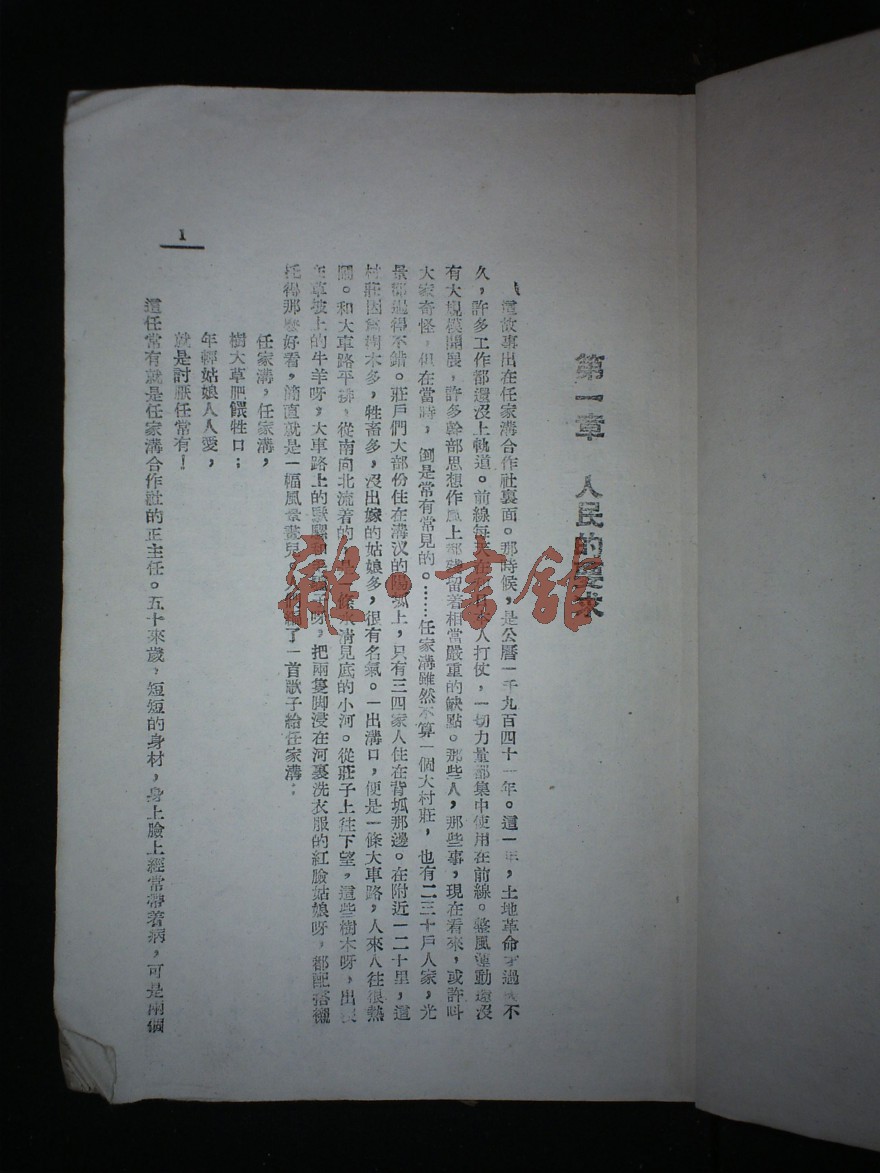 第一章 人民的要求
這故事出在任家溝合作社裏面。那時候,是公曆一千九百四十一年。這一年,土地革命才過去不
久,許多工作都還沒上軌道。前線每天在和日本人打仗,一切力量都集中使用在前線。整風運動還沒
有大規模開展,許多幹部思想作風上都殘留着相當嚴重的缺點。那些人,那些事,現在看來,或許叫
大家奇怪,但在當時,倒是常有常見的。……任家溝雖然不算一個大村莊,也有二三十戶人家,光
景都過得不錯。莊戶們大部份住在溝汊的陽坬上,只有三四家人住在背坬那邊。在附近一二十里,這
村莊因為樹木多,牲畜多,沒出嫁的姑娘多,很有名氣。一出溝口,便是一條大車路,人來人往很熱
鬧。和大車路平排,從南向北流着的,是一條水清見底的小河。從莊子上往下望,這些樹木呀,出
草坡上的牛羊呀,大車路上的馱騾和呀,把兩隻脚浸在河裏洗衣服的紅臉姑娘呀,都配搭襯
托得那麽好看,簡直就是一幅風景畫兒。人們編了一首歌子給任家溝:
任家溝,任家溝,
樹大草肥餵牲口;
年輕姑娘人人愛,
就是討厭任常有!
這任常有就是任家溝合作社的正主任。五十來歲,短短的身材,身上臉上經常帶着病,可是兩個
1
雜·書館